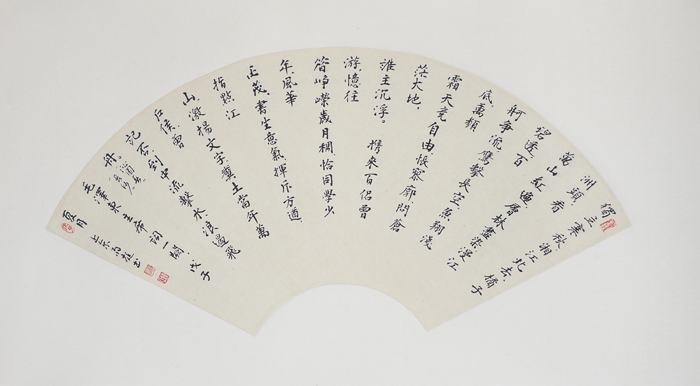 獨立寒秋湘江北去橘子
洲頭看
萬山紅遍層林盡染漫江
碧透百
舸爭流鷹擊長空魚翔淺
底萬類
霜天競自由悵寥廓問蒼
茫大地
誰主沉浮。攜來百侶曾
游憶往
昔崢嶸歲月稠恰同學少
年風華
正茂書生意氣揮斥方遒
指點江
山激揚文字糞土當年萬
戶侯曾
記否到中流擊水浪遏飛
舟
毛澤東主席詞一闋 戊子
夏月